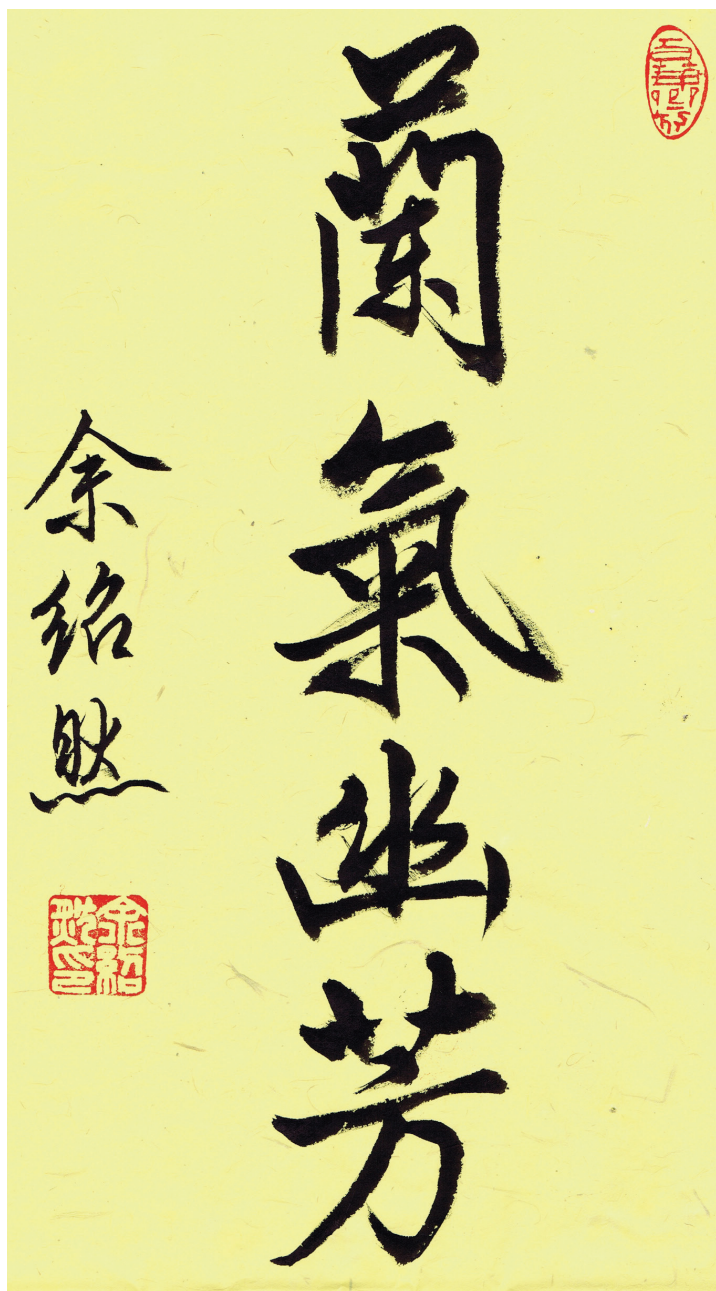 蘭氣幽芳
余紹然
余紹然印